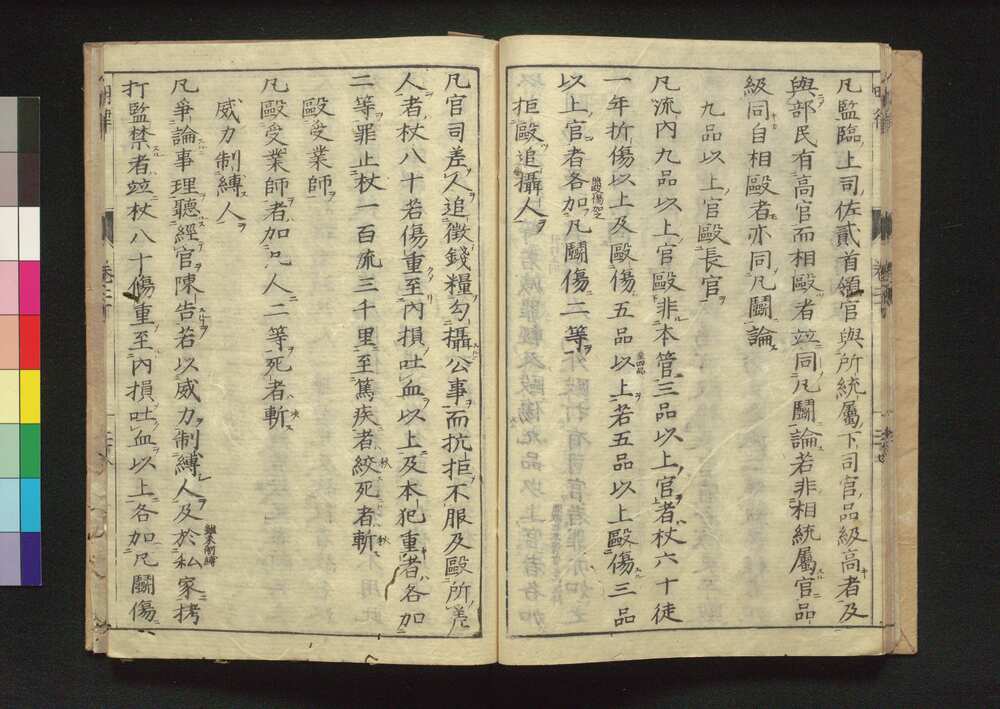 凡監臨上司佐貳首領官與所統屬下司官品級高者及
與部民有高官而相毆者竝同凡鬪論若非相統屬官品
級同自相毆者亦同凡鬪論
九品以上官毆長官
凡流內九品以上官毆非本管三品以上官者杖六十徒
一年折傷以上及毆傷五品以上若五品以上毆傷三品
以上官者各加凡鬪傷二等
拒毆追攝人
凡官司差人追徵錢糧勾攝公事而抗拒不服及毆所差
人者杖八十若傷重至內損吐血以上及本犯重者各加
二等罪止杖一百流三千里至篤疾者絞死者斬
毆受業師
凡毆受業師者加凡人二等死者斬
威力制縛人
凡爭論事理聽經官陳告若以威力制縛人及於私家拷
打監禁者竝杖八十傷重至內損吐血以上各加凡鬪傷